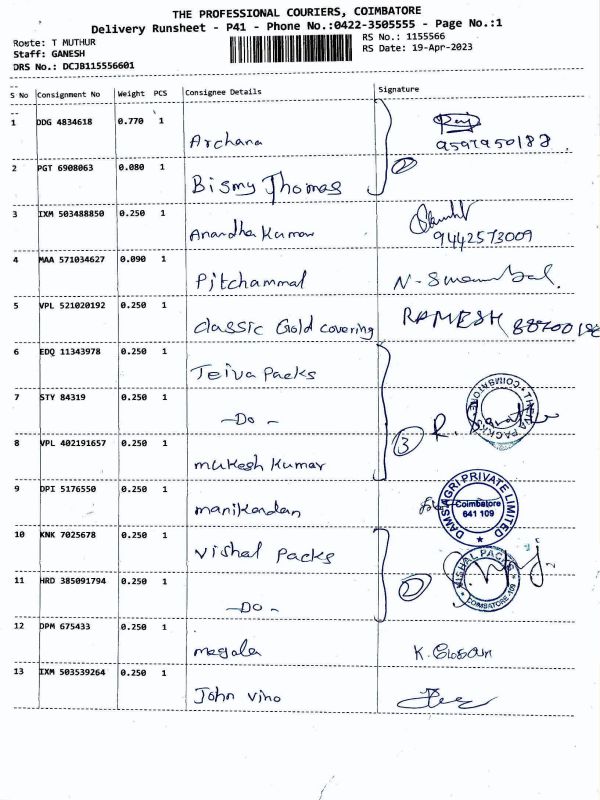 THE PROFESSIONAL COURIERS, COIMBATORE
Delivery Runsheet - P41 - Phone No.:0422-3505555 - Page No.:1
Route: T MUTHUR
Staff: GANESH
DRS No.: DCJB115556601
RS No.: 1155566
RS Date: 19-Apr-2023
S No Consignment No Weight PCS Consignee Details Signature
1 DDG 4834618 0.770 1 Archana
2 PGT 6908063 0.080 1 Bismy Thomas
2
3 IXM 503488850 0.250 1 Anandha Kumar 9442573009
4 MAA 571034627 0.090 1 Pitchammal
5 VPL 521020192 0.250 1 classic Gold covering RAMESH
6 EDQ 11343978 0.250 1 Teiva Packs
7 STY 84319 0.250 1 -Do-
COIMBATORE
8 VPL 402191657 0.250 1 mukesh Kumar
3
9 DPI 5176550 0.250 1 manikandan
DAMSAGRI PRIVATE LIMITED
Coimbatore
641 109
10 KNK 7025678 0.250 1 Vishal Packs
VISHAL PACKS
COIMBATORE-109
11 HRD 385091794 0.250 1 -Do-
2
12 DPM 675433 0.250 1 megala
13 IXM 503539264 0.250 1 John Vino